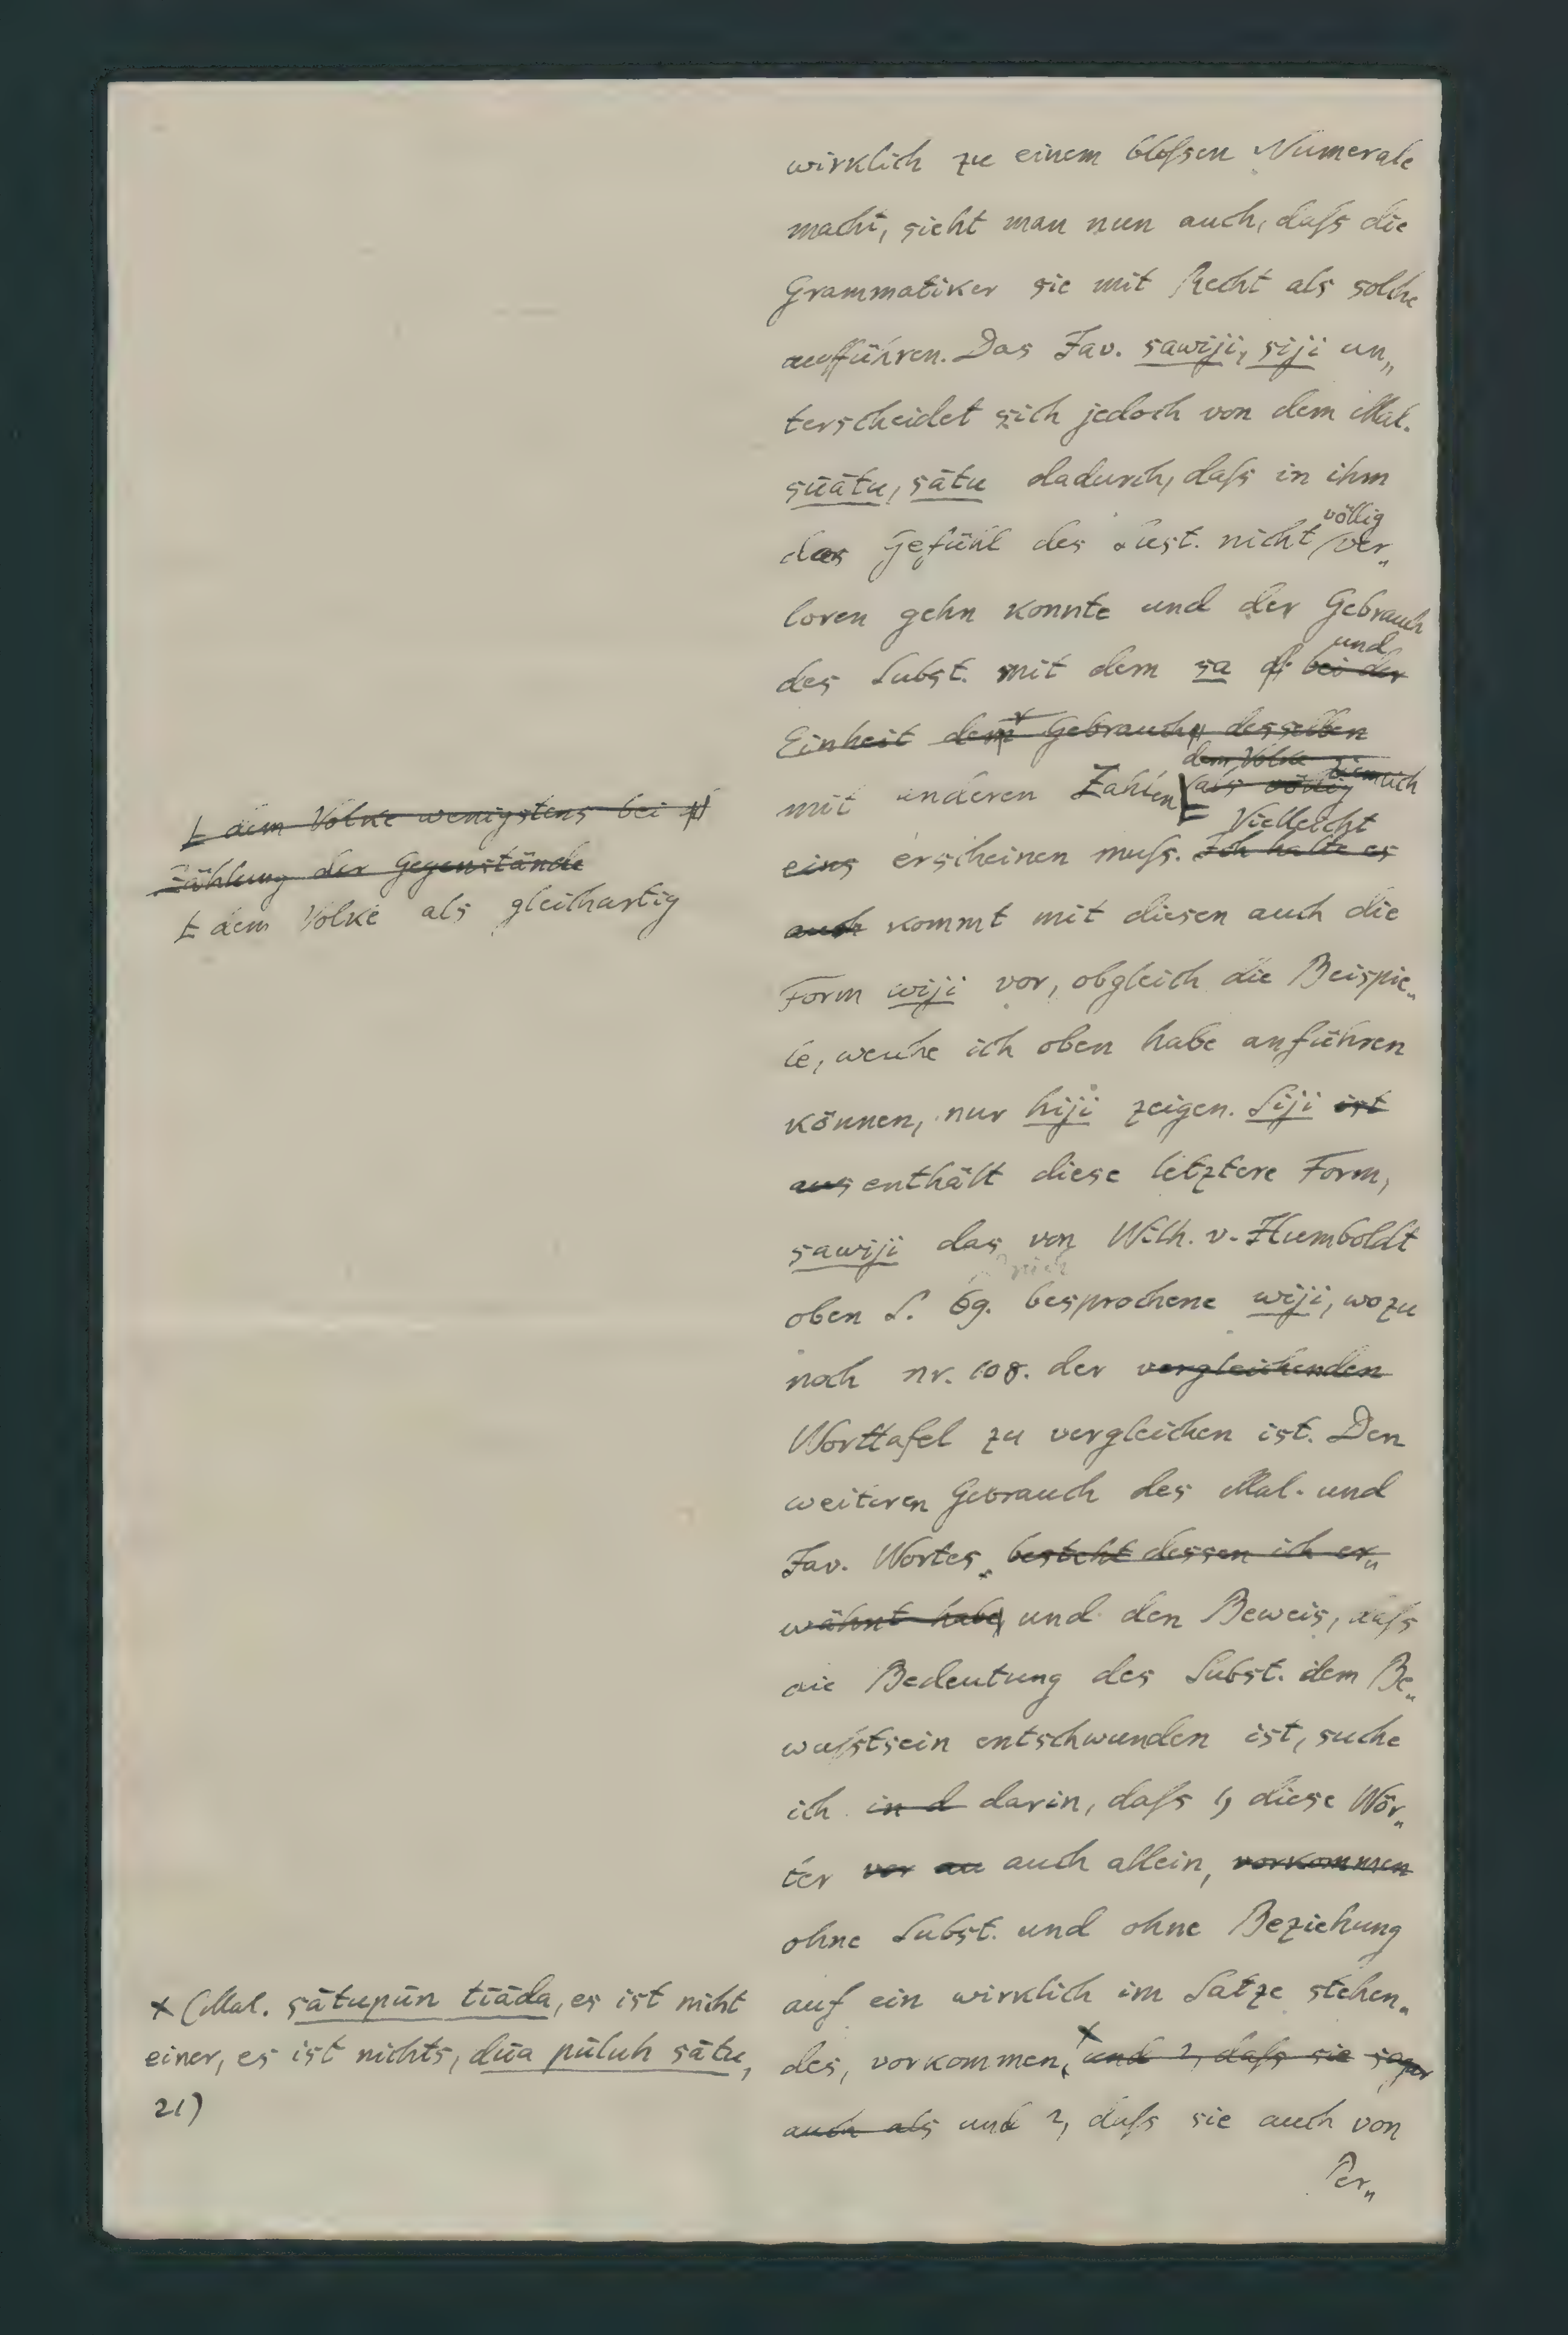 wirklich zu einem bloſsen Numerale
macht, sieht man nun auch, daſs die
Grammatiker sie mit Recht als solche
aufführen. Das Jav. sawiji, siji un„
terscheidet sich jedoch von dem Mal.
sūātu, sātu dadurch, daſs in ihm
völlig
das Gefühl des Subst. nicht ver„
loren gehn konnte und der Gebrauch
und
des Subst. mit dem sa bei der
Einheit dem Gebrauch desselben
dem Volke ziemlich
mit anderen Zahlen als völlig
Vielleicht
eins erscheinen muſs. Ich halte es
auch kommt mit diesen auch die
Form wiji vor, obgleich die Beispie„
le, welche ich oben habe anführen
können, nur hiji zeigen. Siji ist
aus enthält diese letztere Form,
sawiji das von Wilh. v. Humboldt
oben S. 69. besprochene wiji, wozu
noch nr. 108. der vergleichenden
Worttafel zu vergleichen ist. Den
weiteren Gebrauch des Mal. und
Jav. Wortes, besteht dessen ich er„
wähnt habe, und den Beweis, daſs
die Bedeutung des Subst. dem Be„
wuſstsein entschwunden ist, suche
ich in d darin, daſs 1, diese Wör„
ter vor au auch allein, vorkommen
ohne Subst. und ohne Beziehung
auf ein wirklich im Satze stehen„
des, vorkommen, × und 2, daſs sie sogar
auch als und 2, daſs sie auch von
Per„
Ł dem Volke wenigstens bei
Zählung der Gegenstände
Ł dem Volke als gleichartig
× (Mal. sātupūn tīāda, es ist nicht
einer, es ist nichts, dūa pūluh sātu,
21)